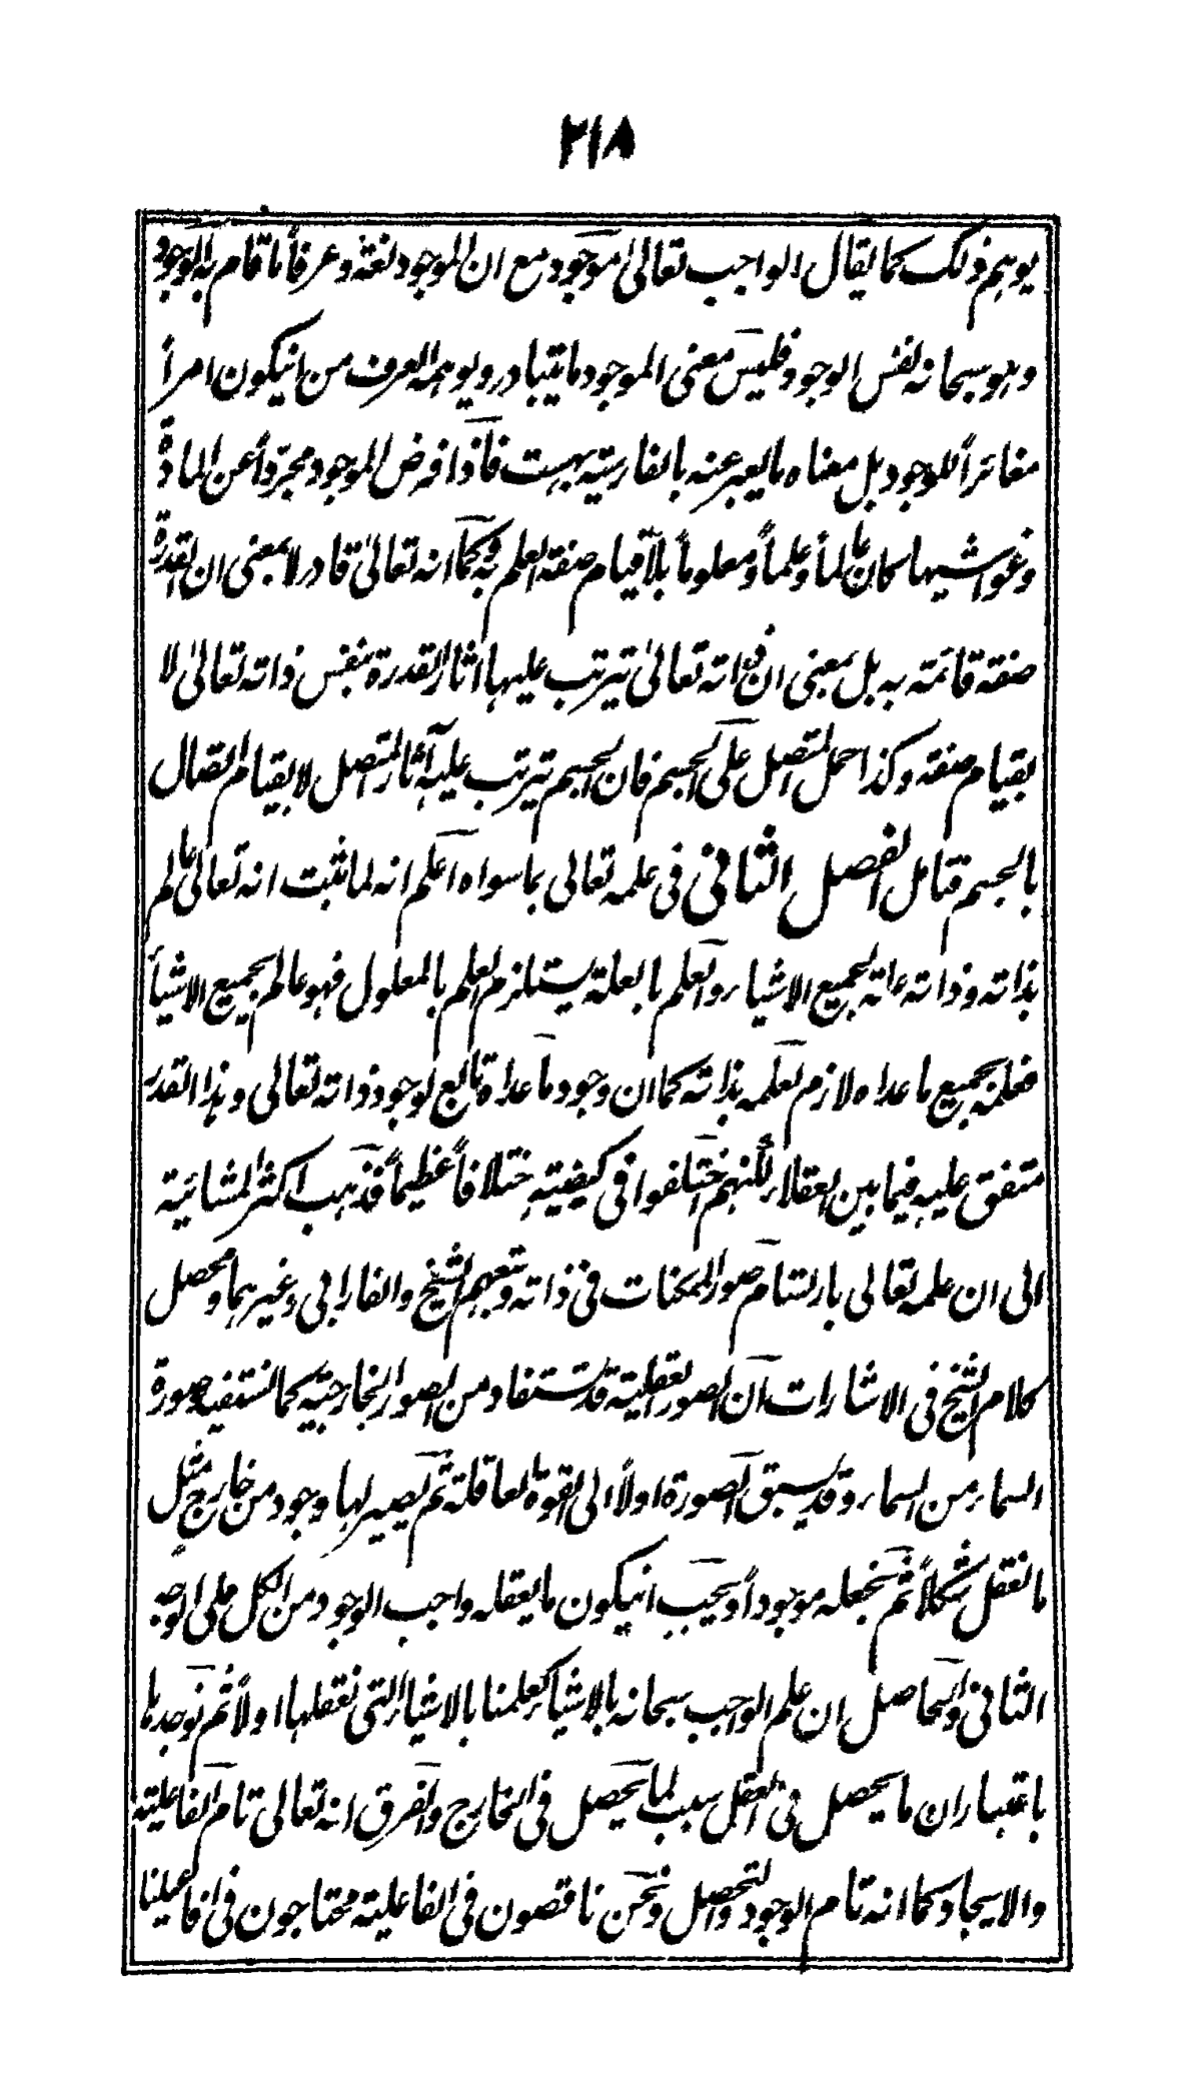 ٢١٨
يوهم ذلك كما يقال الواجب تعالى موجود مع ان الموجود لغة وعرفاً ما قام به الوجود
وهو سبحانه نفس الوجود فليس معنى الموجود ما يتبادر ويوهمه العرف من انيكون امراً
مغائراً للوجود بل معناه ما يعبر عنه بالفارسية بهست فاذا فرض الموجود مجرداً عن المادة
وغواشيها كان عالماً وعلماً ومعلوماً بلا قيام صفة العلم به كما انه تعالى قادر لا بمعنى ان القدرة
صفة قائمة به بل بمعنى ان ذاته تعالى تيرتب عليها اثار القدرة بنفس ذاته تعالى لا
بقيام صفة وكذا حمل المتصل على الجسم فان الجسم تيرتب عليه آثار المتصل لا بقيام اتصال
بالجسم فتامل الفصل الثاني في علمه تعالى بما سواه اعلم انه لما ثبت انه تعالى عالم
بذاته وذاته علة لجميع الاشياء والعلم بالعلة يستلزم العلم بالمعلول فهو عالم بجميع الاشياء
فعلمه بجميع ما عداه لازم لعلمه بذاته كما ان وجود ما عداه تابع لوجود ذاته تعالى وهذا القدر
متفق عليه فيما بين العقلاء لكنهم اختلفوا في كيفيته اختلافاً عظيماً فذهب اكثر المشائية
الى ان علمه تعالى بارتسام صور الممكنات في ذاته وتبعهم الشيخ والفارابي وغيرهما ومحصل
كلام الشيخ في الاشارات ان الصور العقلية قد تستفاد من الصور الخارجية كما تستفيد صورة
السماء من السماء وقد يسبق الصورة اولاً الى القوة العاقلة ثم يصير لها وجود من خارج مثل
ما نعقل شكلاً ثم نجعله موجوداً ويجب انيكون ما يعقله واجب الوجود من الكل على الوجه
الثاني والحاصل ان علم الواجب سبحانه بالاشياء كعلمنا بالاشياء التي نعقلها اولاً ثم نوجدها
باعتبار ان ما يحصل في العقل سبب لما يحصل في الخارج والفرق انه تعالى تام الفاعلية
والايجاد كما انه تام الوجود والتحصل ونحن ناقصون في الفاعلية محتاجون في افاعيلنا